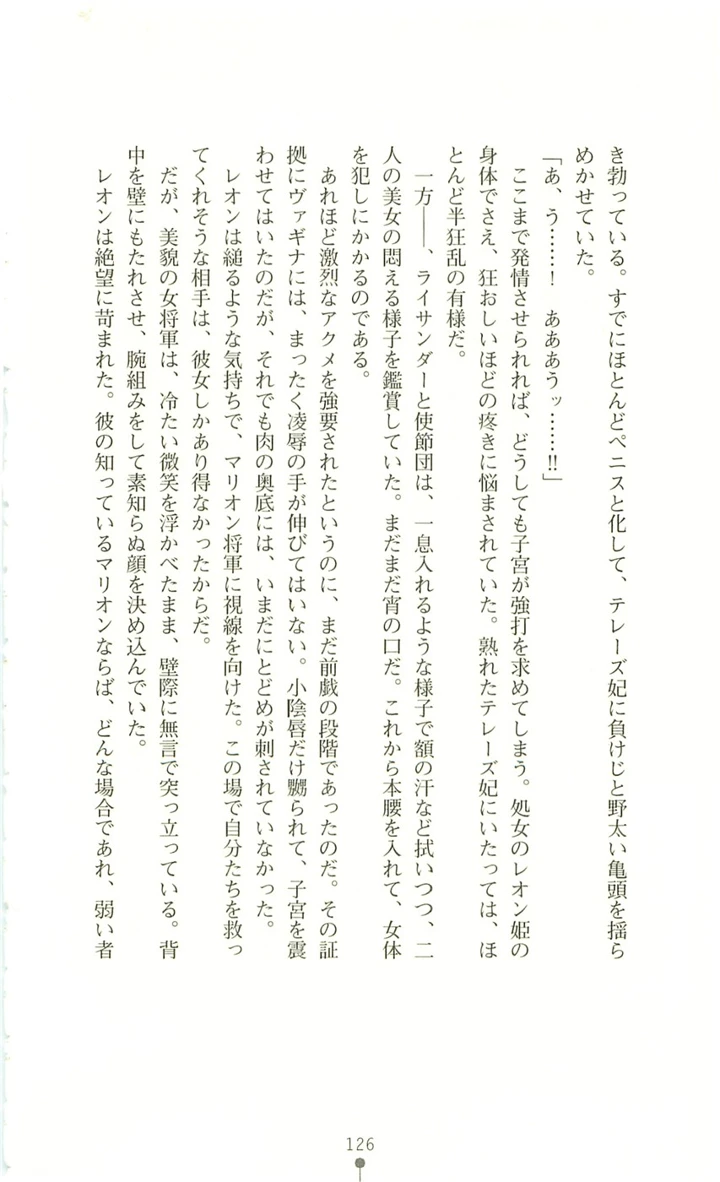 き勃っている。すでにほとんどペニスと化して、テレーズ妃に負けじと野太い亀頭を揺ら
めかせていた。
「あ、う……！　あああうッ……!!」
ここまで発情させられれば、どうしても子宮が強打を求めてしまう。処女のレオン姫の
身体でさえ、狂おしいほどの疼きに悩まされていた。熟れたテレーズ妃にいたっては、ほ
とんど半狂乱の有様だ。
一方――、ライサンダーと使節団は、一息入れるような様子で額の汗など拭いつつ、二
人の美女の悶える様子を鑑賞していた。まだまだ宵の口だ。これから本腰を入れて、女体
を犯しにかかるのである。
あれほど激烈なアクメを強要されたというのに、まだ前戯の段階であったのだ。その証
拠にヴァギナには、まったく凌辱の手が伸びてはいない。小陰唇だけ嬲られて、子宮を震
わせてはいたのだが、それでも肉の奥底には、いまだにとどめが刺されていなかった。
レオンは縋るような気持ちで、マリオン将軍に視線を向けた。この場で自分たちを救っ
てくれそうな相手は、彼女しかあり得なかったからだ。
だが、美貌の女将軍は、冷たい微笑を浮かべたまま、壁際に無言で突っ立っている。背
中を壁にもたれさせ、腕組みをして素知らぬ顔を決め込んでいた。
レオンは絶望に苛まれた。彼の知っているマリオンならば、どんな場合であれ、弱い者
126